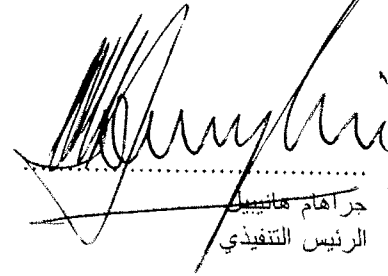 جراهام هانيبيل
الرئيس التنفيذي